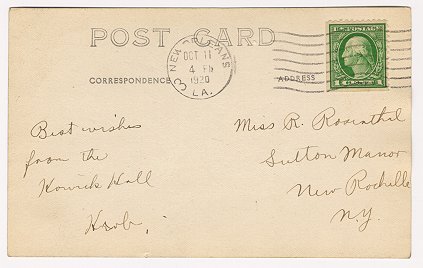 POST CARD
NEW ORLEANS
OCT 11
4 PM
1920
LA.
CORRESPONDENCE
ADDRESS
Best wishes
from the
Howick Hall
Miss R. Rosenthal
Sutton Manor
New Rochelle
N.Y.